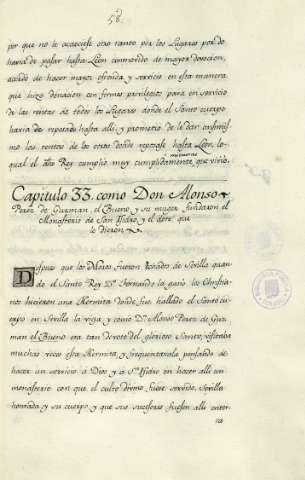 58.
por que no le acaeciese otro tanto por los Lugares por do
havia de pasar hasta Leon commovido de mayor devocion,
acordó de hacer mayor ofrenda y servicio en esta manera
que hizo donacion con firmes privilegios para en servicio
de las rentas de todos los Lugares donde el Santo cuerpo
havia reposado hasta alli, y prometio de le dar assimis
mo las rentas de los otros donde reposase hasta Leon, lo
qual el dho Rey cumplió muy cumplidamente mientras que vivio.
Capitulo 33. como Don Alonso
Perez de Guzman, el Bueno y su muger fundaron el
Monasterio de San Isidro, y el dote que
le dieron
Despues que los Moros fueron echados de Sevilla quan
do el Santo Rey Dn. Fernando la ganó los Christia-
nos hicieron una Hermita donde fue hallado el Santo cu
erpo en Sevilla la vieja y como Dn. Alonso Perez de Guz
man el Bueno era tan devoto del glorioso Santo, visitaba
muchas veces esta Hermita, y frequentavala pensando de
hacer un servicio a Dios y a Sn. Isidro en hacer alli un
monasterio con que el culto divino fuese servido, Sevilla
honrada y su cuerpo, y que sus sucesores fuesen alli enter-
ra